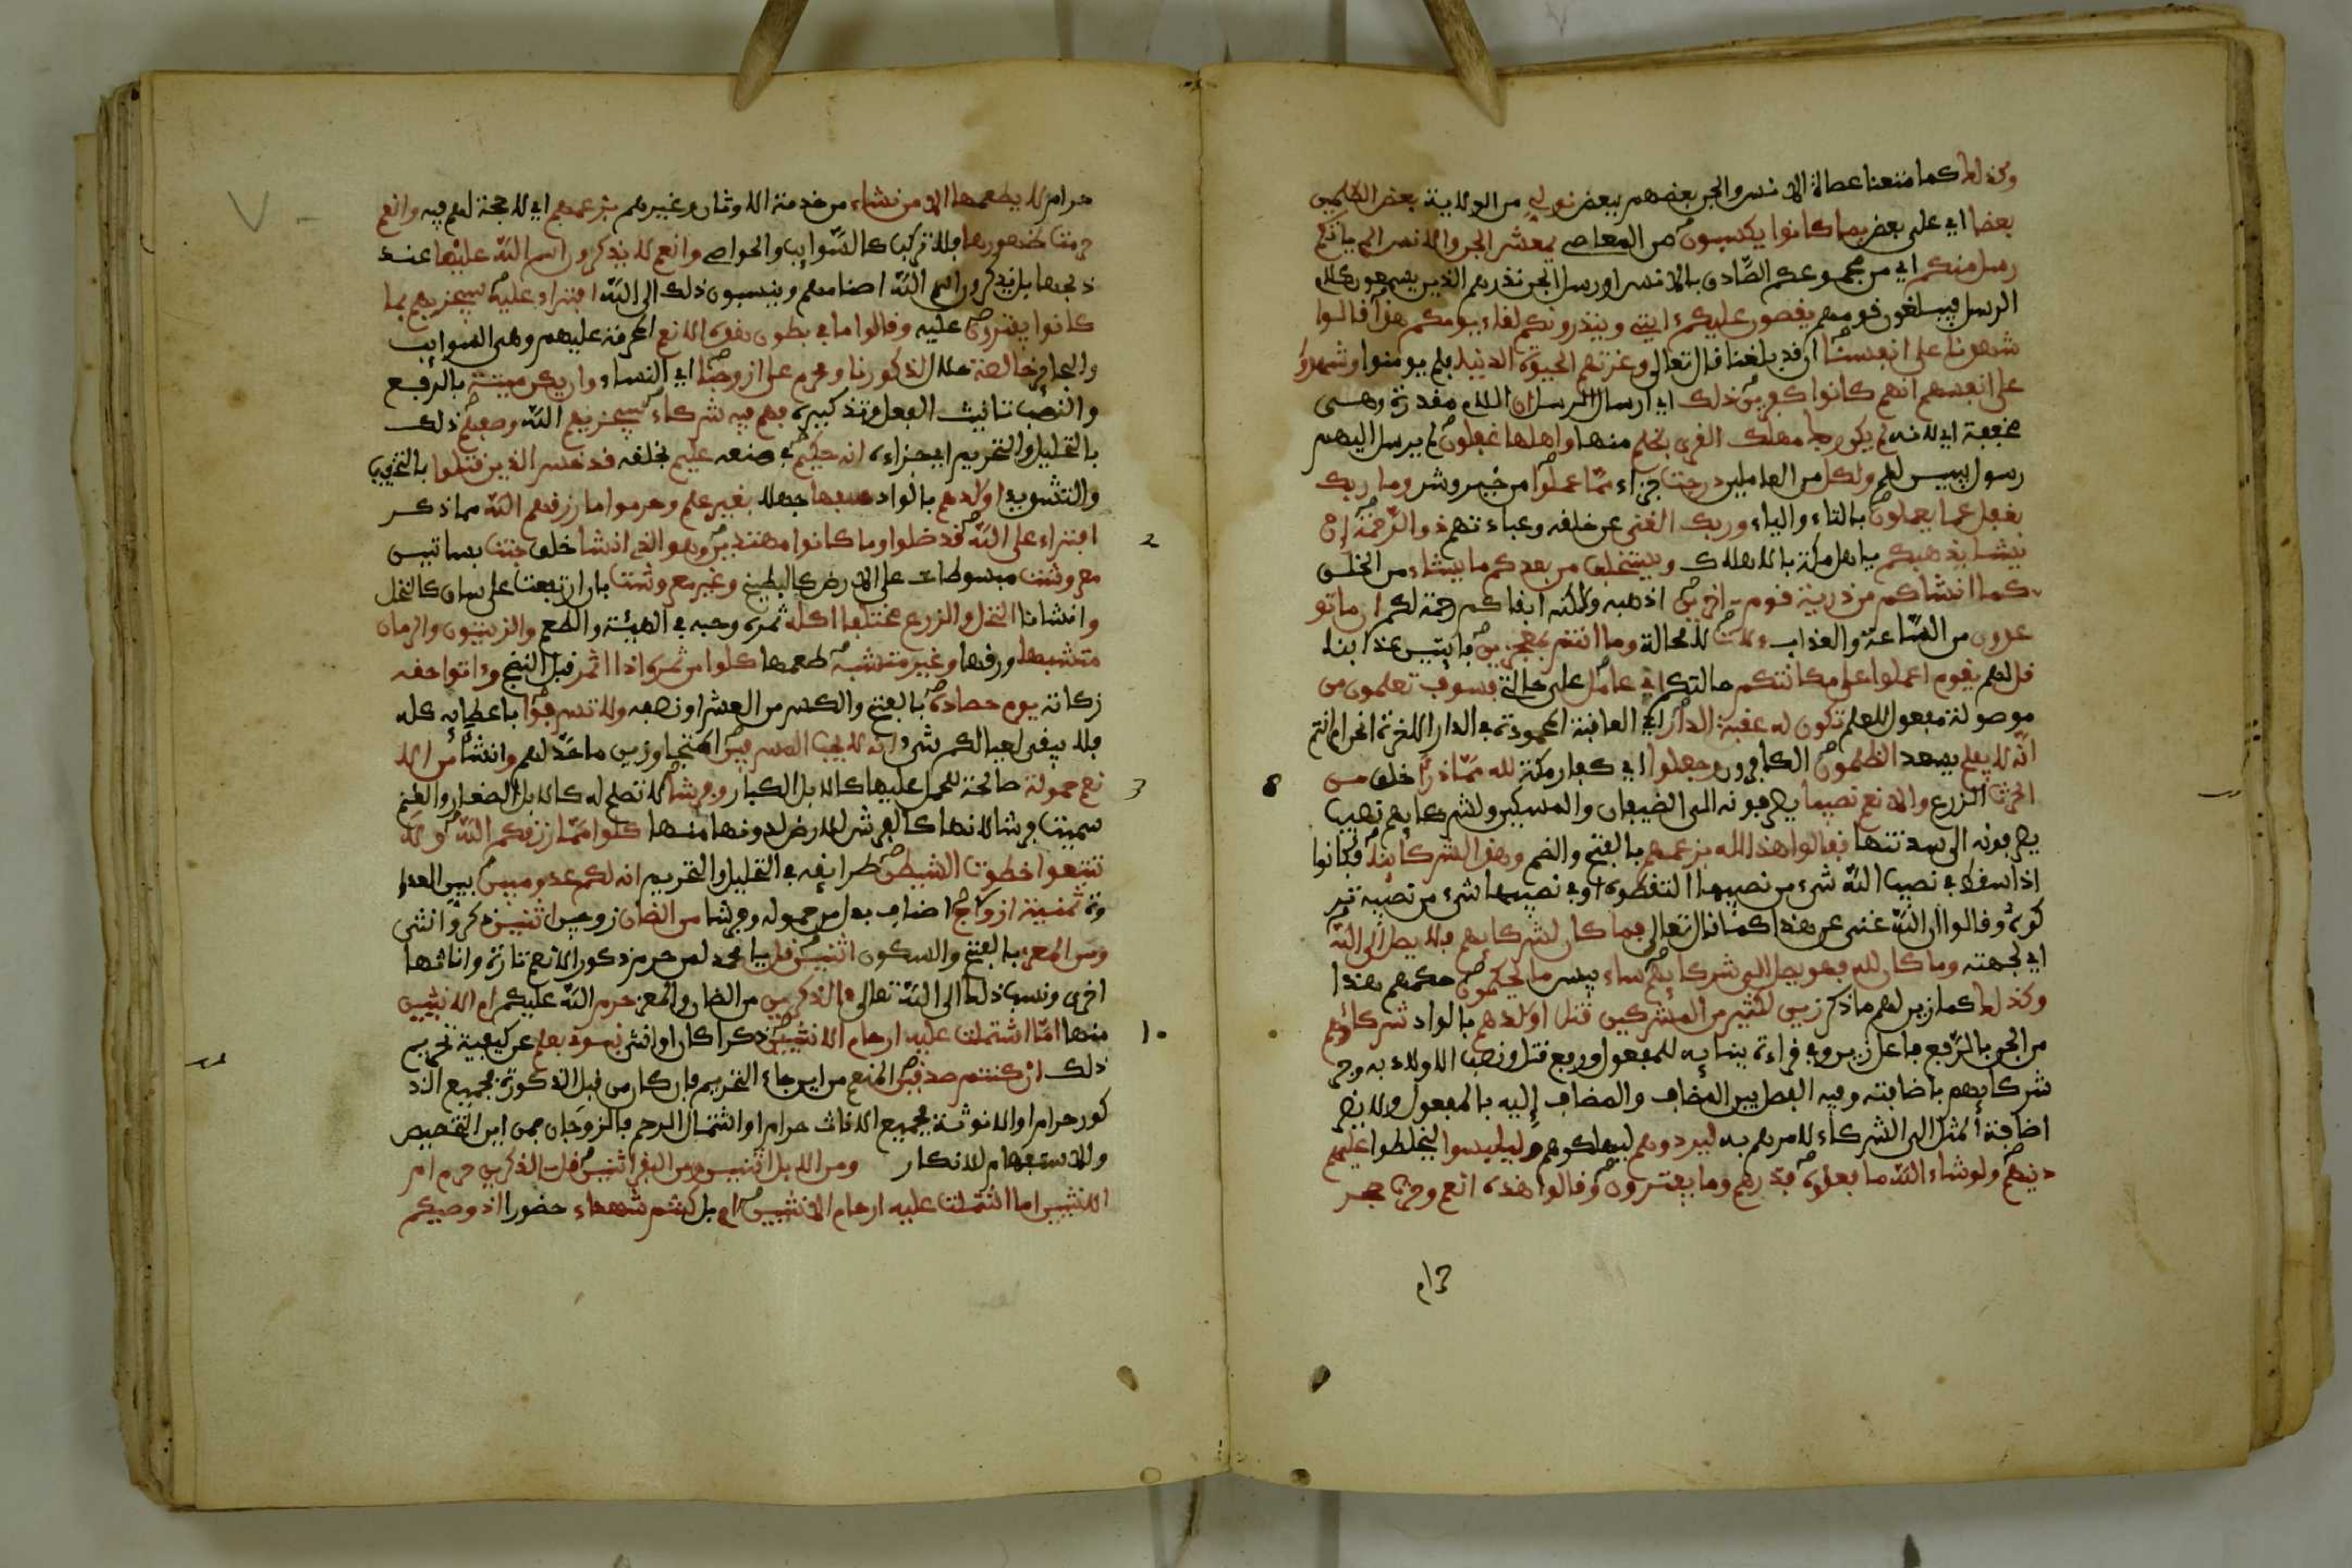 وكذلك كما متعنا عصاة الانس والجن بعضهم ببعض نولى من الولاية بعض الظلمين
بعضا اي على بعض بما كانوا يكسبون من المعاصي يمعشر الجن والانس الم ياتكم
رسل منكم اي من مجموعكم الصادق بالانس او رسل الجن نذرهم الذين يسمعون كلام
الرسل فيبلغون قومهم يقصون عليكم ءايتي وينذرونكم لقاء يومكم هذا قالوا
شهدنا على انفسنا ان قد بلغنا قال تعالى وغرتهم الحيوة الدنيا فلم يومنوا وشهدوا
على انفسهم انهم كانوا كفرين ذلك اي ارسال الرسل ان اللام مقدرة وهي
مخففة اي لانه لم يكن ربك مهلك القرى بظلم منها واهلها غفلون لم يرسل اليهم
رسول يبين لهم ولكل من العاملين درجت جزاء مما عملوا من خير وشر وما ربك
بغفل عما يعملون بالتاء والياء وربك الغني عن خلقه وعبادتهم ذو الرحمة ان
يشا يذهبكم يا اهل مكة بالاهلاك ويستخلف من بعدكم ما يشاء من الخلق
كما انشاكم من ذرية قوم اخرين اذهبهم ولكنه ابقاكم رحمة لكم ان ما تو
عدون من الساعة والعذاب ءلات لا محالة وما انتم بمعجزين فايتين عذابنا
قل لهم يقوم اعملوا على مكانتكم حالتكم اني عامل على حالتي فسوف تعلمون من
موصولة مفعول العلم تكون له عقبة الدار اي العاقبة المحمودة في الدار الاخرة انحن ام انتم
انه لا يفلح يسعد الظلمون الكافرون وجعلوا اي كفار مكة لله مما ذرا خلق من
الحرث الزرع والانعم نصيبا يصرفونه الى الضيفان والمسكين ولشركايهم نصيب
يصرفونه الى سدنتها فقالوا هذا لله بزعمهم بالفتح والضم وهذا لشركاينا فكانوا
اذا سقط في نصيب الله شيء من نصيبها التقطوه او في نصيبها شيء من نصيبه تر
كوه وقالوا ان الله غني عن هذا كما قال تعالى فما كان لشركايهم فلا يصل الى الله
اي لجهته وما كان لله فهو يصل الى شركايهم ساء بيس ما يحكمون حكمهم هذا
وكذلك كما زين لهم ما ذكر زين لكثير من المشركين قتل اولدهم بالواد شركاؤهم
من الجن بالرفع فاعل زين وفي قراءة ببنايه للمفعول ورفع قتل ونصب الاولاد به وجر
شركايهم باضافته وفيه الفصل بين المضاف والمضاف إليه بالمفعول ولا يضر
اضافة القتل الى الشركاء لامرهم به ليردوهم ليهلكوهم وليلبسوا ليخلطوا عليهم
دينهم ولو شاء الله ما فعلوه فذرهم وما يفترون وقالوا هذه انعم وحرث حجر
حرام
حرام لا يطعمها الا من نشاء من خدمة الاوثان وغيرهم بزعمهم اي لا حجة لهم فيه وانعم
حرمت ظهورها فلا تركب كالسوايب والحوامي وانعم لا يذكرون اسم الله عليها عند
ذبحها بل يذكرون اسم اصنامهم وينسبون ذلك الى الله افتراء عليه سيجزيهم بما
كانوا يفترون عليه وقالوا ما في بطون هذه الانعم المحرمة عليهم وهي السوايب
والبحاير خالصة حلال لذكورنا ومحرم على ازوجنا اي النساء وان يكن ميتة بالرفع
والنصب تانيث الفعل وتذكيره فهم فيه شركاء سيجزيهم الله وصفهم ذلك
بالتحليل والتحريم اي جزاءه انه حكيم في صنعه عليم بخلقه قد خسر الذين قتلوا بالتخفيف
والتشديد اولدهم بالواد سفها جهلا بغير علم وحرموا ما رزقهم الله مما ذكر
افتراء على الله قد ضلوا وما كانوا مهتدين وهو الذي انشا خلق جنت بساتين
معروشت مبسوطات على الارض كالبطيخ وغير معروشت بان ارتفعت على ساق كالنخل
وانشانا النخل والزرع مختلفا اكله ثمره وحبه في الهيئة والطعم والزيتون والرمان
متشبها ورقها وغير متشبه طعمها كلوا من ثمره اذا اثمر قبل النضج وءاتوا حقه
زكاته يوم حصاده بالفتح والكسر من العشر او نصفه ولا تسرفوا باعطايه كله
فلا يبقى لعيالكم شيء انه لا يحب المسرفين المتجاوزين ما حد لهم وانشا من الا
نعم حمولة صالحة للحمل عليها كالابل الكبار وفرشا لا تصلح له كالابل الصغار والغنم
سميت فرشا لانها كالفرش للارض لدنوها منها كلوا مما رزقكم الله ولا
تتبعوا خطوت الشيطن طرايقه في التحليل والتحريم انه لكم عدو مبين بين العداو
وة ثمنية ازوج اصناف بدل من حمولة وفرشا من الضان زوجين اثنين ذكر وانثى
ومن المعز بالفتح والسكون اثنين قل يا محمد لمن حرم ذكور الانعم تارة واناثها
اخرى ونسب ذلك الى الله تعالى ءالذكرين من الضان والمعز حرم الله عليكم ام الانثيين
منها اما اشتملت عليه ارحام الانثيين ذكرا كان او انثى نبئوني بعلم عن كيفية تحريم
ذلك ان كنتم صدقين المنع من اين جاء التحريم فان كان من قبل الذكورة فجميع الذ
كور حرام او الانوثة فجميع الاناث حرام او اشتمال الرحم فالزوجان فمن اين التخصيص
والاستفهام للانكار ومن الابل اثنين ومن البقر اثنين قل ءالذكرين حرم ام
الانثيين اما اشتملت عليه ارحام الانثيين ام بل كنتم شهداء حضورا اذ وصيكم